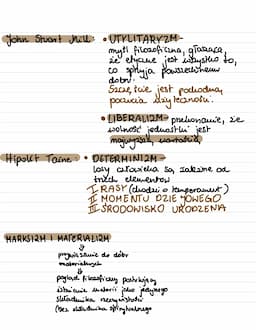 John Stuart Mill • UTYLITARYZM -
myśl filozoficzna, głosząca
że etyczne jest wszystko to,
co sprzyja powszechnemu
dobru.
Szczęście jest pochodną
poczucia użyteczności.
• LIBERALIZM - przekonanie, że
wolność jednostki jest
najwyższą wartością
Hipolit Taine • DETERMINIZM -
losy człowieka są zależne od
trzech elementów
I RASY (chodzi o temperament)
II MOMENTU DZIEJOWEGO
III ŚRODOWISKO URODZENIA
MARKSIZM I MATERIALIZM
przywiązanie do dóbr
materialnych
pogląd filozoficzny postulujący
istnienie materii jako jedynego
składnika rzeczywistości
(bez składnika spirytualnego)